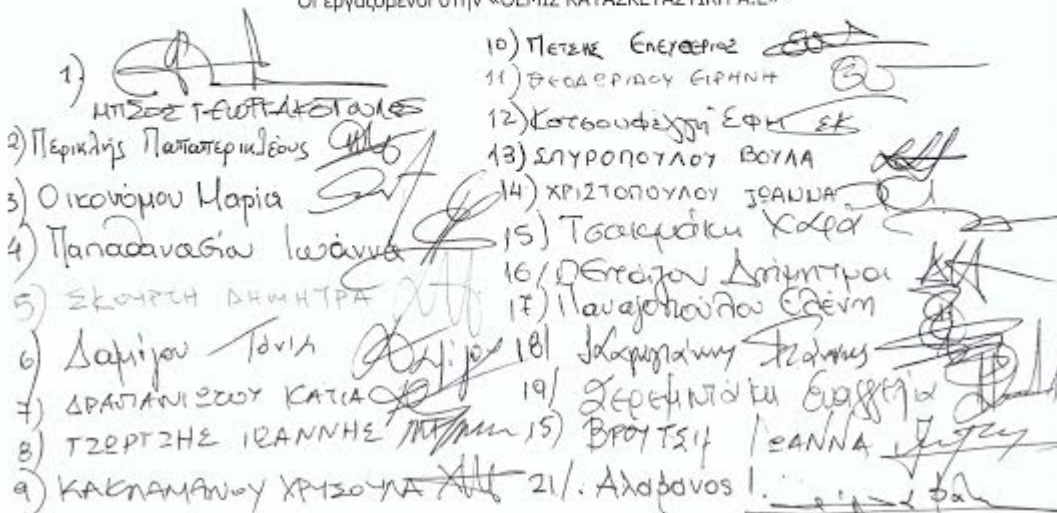 Οι εργαζόμενοι στην «ΘΕΜΙΣ ΚΑΤΑΣΚΕΥΑΣΤΙΚΗ Α.Ε»
1)
ΜΠΣΟΣ ΓΕΩΡΓΑΚΟΠΟΥΛΟΣ
2) Περικλής Παπαπερικλέους
3) Οικονόμου Μαρία
4) Παπαθανασίου Ιωάννα
5) ΣΚΟΥΡΤΗ ΔΗΜΗΤΡΑ
6) Δαμίγου
7) ΔΡΑΠΑΝΙΩΤΟΥ ΚΑΤΙΑ
8) ΤΖΩΡΤΖΗΣ ΙΩΑΝΝΗΣ
9) ΚΑΚΛΑΜΑΝΟΥ ΧΡΥΣΟΥΛΑ
10) ΠΕΤΣΗΣ ΕΛΕΥΘΕΡΙΟΣ
11) ΘΕΟΔΩΡΙΔΟΥ ΕΙΡΗΝΗ
12) Έφη ΕΚ
13) ΣΠΥΡΟΠΟΥΛΟΥ ΒΟΥΛΑ
14) ΧΡΙΣΤΟΠΟΥΛΟΥ ΙΩΑΝΝΑ
15) Τσακμάκη Χαρά
16) Δήμητρα
17) Παναγοπούλου Ελένη
18) Γιάννης
19) Ευαγγελία
15) ΒΡΟΥΤΣΗ ΙΩΑΝΝΑ
21). Αλαβάνος Ι.